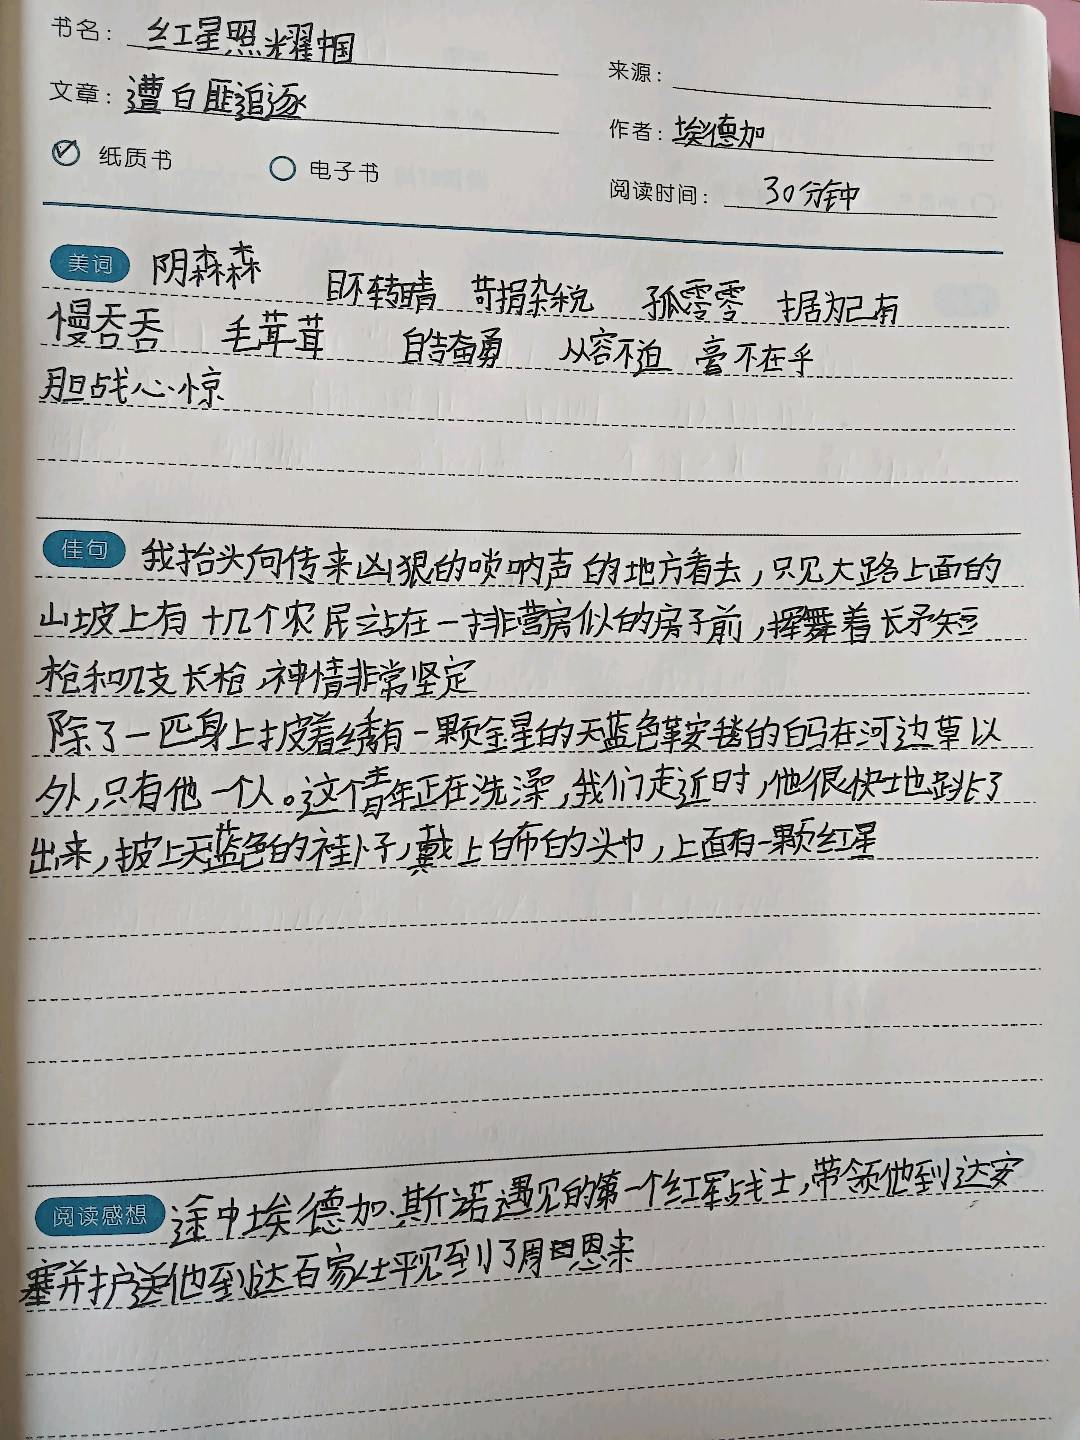 书名: 红星照耀中国
来源:
文章: 遭白匪追逐
作者: 埃德加
纸质书 电子书
阅读时间: 30分钟
美词 阴森森 目不转睛 苛捐杂税 孤零零 据为己有
慢吞吞 毛茸茸 自告奋勇 从容不迫 毫不在乎
胆战心惊
佳句 我抬头向传来凶狠的唢呐声的地方看去,只见大路上面的
山坡上有十几个农民站在一排营房似的房子前,挥舞着长矛短
枪和几支长枪,神情非常坚定
除了一匹身上披着绣有一颗金星的天蓝色鞍毯的白马在河边草以
外,只有他一个人。这个青年正在洗澡,我们走近时,他很快地跳了
出来,披上天蓝色的褂子,戴上白布的头巾,上面有一颗红星
阅读感想 途中埃德加.斯诺遇见的第一个红军战士,带领他到达安
塞并护送他到达百家仕平见到了周恩来